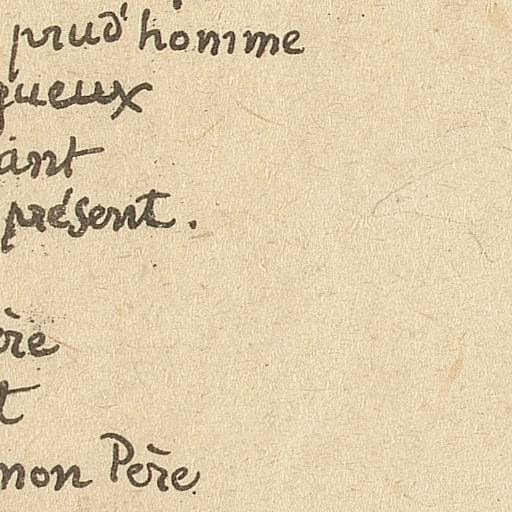 prud'homme
gueux
ant
présent.
ère
t
mon Père